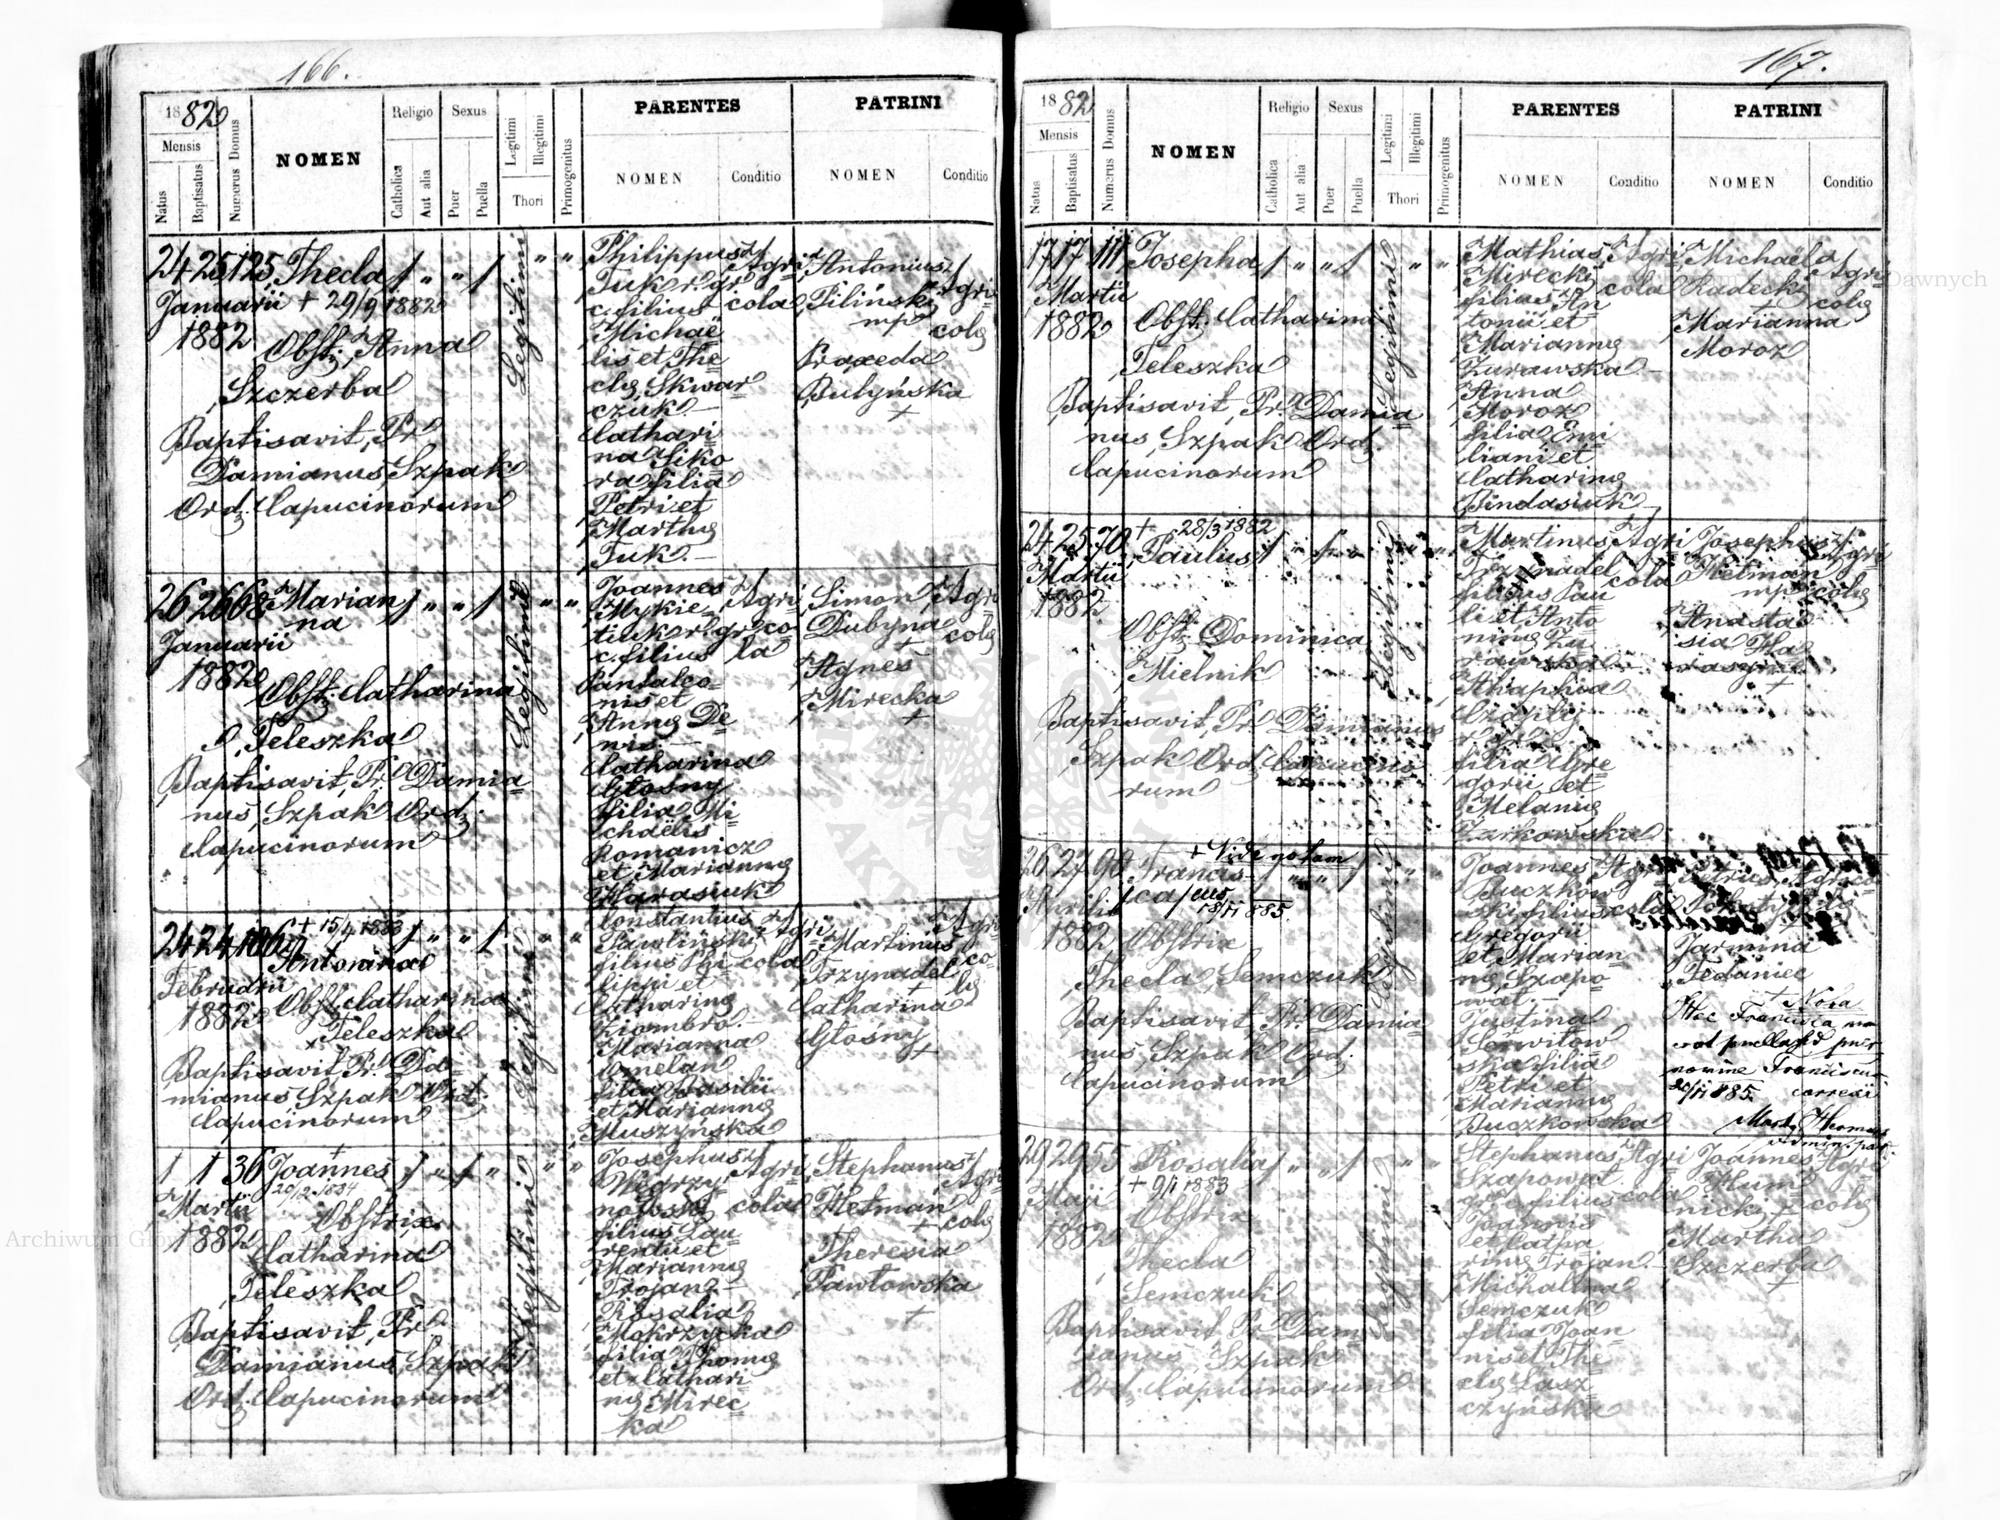 166.
1882
Mensis
Natus
Baptisatus
Numerus Domus
NOMEN
Religio
Catholica
Aut alia
Sexus
Puer
Puella
Legitimi
Illegitimi
Thori
Primogenitus
PARENTES
NOMEN
Conditio
PATRINI
NOMEN
Conditio
24 25 125 Thecla
Januarii + 29/9 1882
1882 Obst. Anna
Szczerba
Baptisavit Pr.
Damianus Szpak
Ord. Capucinorum
Legitimi
Philippus
Tuk r. gr.
c. filius
Michaë
lis et The
clę Skwar
czuk
Cathari
na Siko
ra filia
Petri et
Marthę
Tuk.
Agri
cola
Antonius
Piliński
mp
Praxeda
Bułyńska
+
Agri
colę
26 26 68 Marian
na
Januarii
1882 Obst. Catharina
Teleszka
Baptisavit Pr. Damia
nus Szpak Ord.
Capucinorum
Legitimi
Joannes
Mykie
tiuk r. gr.
c. filius
Pantaleo
nis et
Annę De
nis.
Catharina
Głosny
filia Mi
chaëlis
Romanicz
et Mariannę
Harasiuk
Agri
co
la
Simon
Dubyna
+
Agnes
Mirecka
+
Agri
colę
24 24 106 + 15/4 1883
Antonina
Februarii
1882 Obst. Catharina
Teleszka
Baptisavit Pr. Da
mianus Szpak Ord.
Capucinorum
Legitimi
Constantius
Pawliński
filius Phi
lippi et
Catharinę
Ziombro.
Marianna
Omelan
filia Basilii
et Mariannę
Muszyńska
Agri
cola
Martinus
Trzynadel
+
Catharina
Głosny
+
Agri
co
lę
1 1 36 Joannes
20/12 1884
Martii
1882
Obstrix
Catharina
Teleszka
Baptisavit Pr.
Damianus Szpak
Ord. Capucinorum
Legitimi
Josephus
Węgrzy
nowski
filius Lau
rentii et
Mariannę
Trojan
Rosalia
Mokrzycka
filia Thomę
et Cathari
nę Mirec
ka
Agri
cola
Stephanus
Hetman
+
Theresia
Pawłowska
+
Agri
colę
167.
1882
Mensis
Natus
Baptisatus
Numerus Domus
NOMEN
Religio
Catholica
Aut alia
Sexus
Puer
Puella
Legitimi
Illegitimi
Thori
Primogenitus
PARENTES
NOMEN
Conditio
PATRINI
NOMEN
Conditio
17 17 111 Josepha
Martii
1882 Obst. Catharina
Teleszka
Baptisavit Pr. Damia
nus Szpak Ord.
Capucinorum
Legitimi
Mathias
Mirecki
filius An
tonii et
Mariannę
Żurawska
Anna
Moroz
filia Emi
liani et
Catharinę
Bindasiuk
Agri
cola
Michaël
Radecki
+
Marianna
Moroz
Agri
colę
24 25 70 + 28/3 1882
Paulus
Martii
1882
Obst. Dominica
Mielnik
Baptisavit Pr. Damianus
Szpak Ord. Capucino
rum
Legitimi
Martinus
Trzynadel
filius Pau
li et Anto
ninę Żu
rawska
Ahaphia
filia Gre
gorii et
Melanię
Żarkowska
Agri
cola
Josephus
Hetman
mp
Anasta
sia Ha
+
Agri
colę
26 27 90 Francis
ca / cus
+ Vide notam
18/11 885.
Aprilis
1882 Obstrix
Thecla Semczuk
Baptisavit Pr. Damia
nus Szpak Ord.
Capucinorum
Legitimi
Joannes
Buczkow
ski filius
Gregorii
et Marian
nę Szapo
wał.
Justina
Serwitow
ska filia
Petri et
Mariannę
Buczkowska
Agri
cola
Petrus
Jarmina
Fedaniec
+ Nota
Haec Francisca non
erat puella sed puer
nomine Franciscus
20/11 885. correxi
29 29 55 Rosalia
+ 9/1 1883
Maji
1882
Obstrix
Thecla
Semczuk
Baptisavit Pr. Dam
ianus Szpak
Ord. Capucinorum
Legitimi
Stephanus
Szapował
gr. c. filius
Joannis
et Catha
rinę Trojan.
Michalina
Semczuk
filia Joan
nis et The
clę Lasz
czyńska
Agri
cola
Joannes
Hum
nicki +
Martha
Szczerba
+
Agri
colę
Archiwum Główne Akt Dawnych